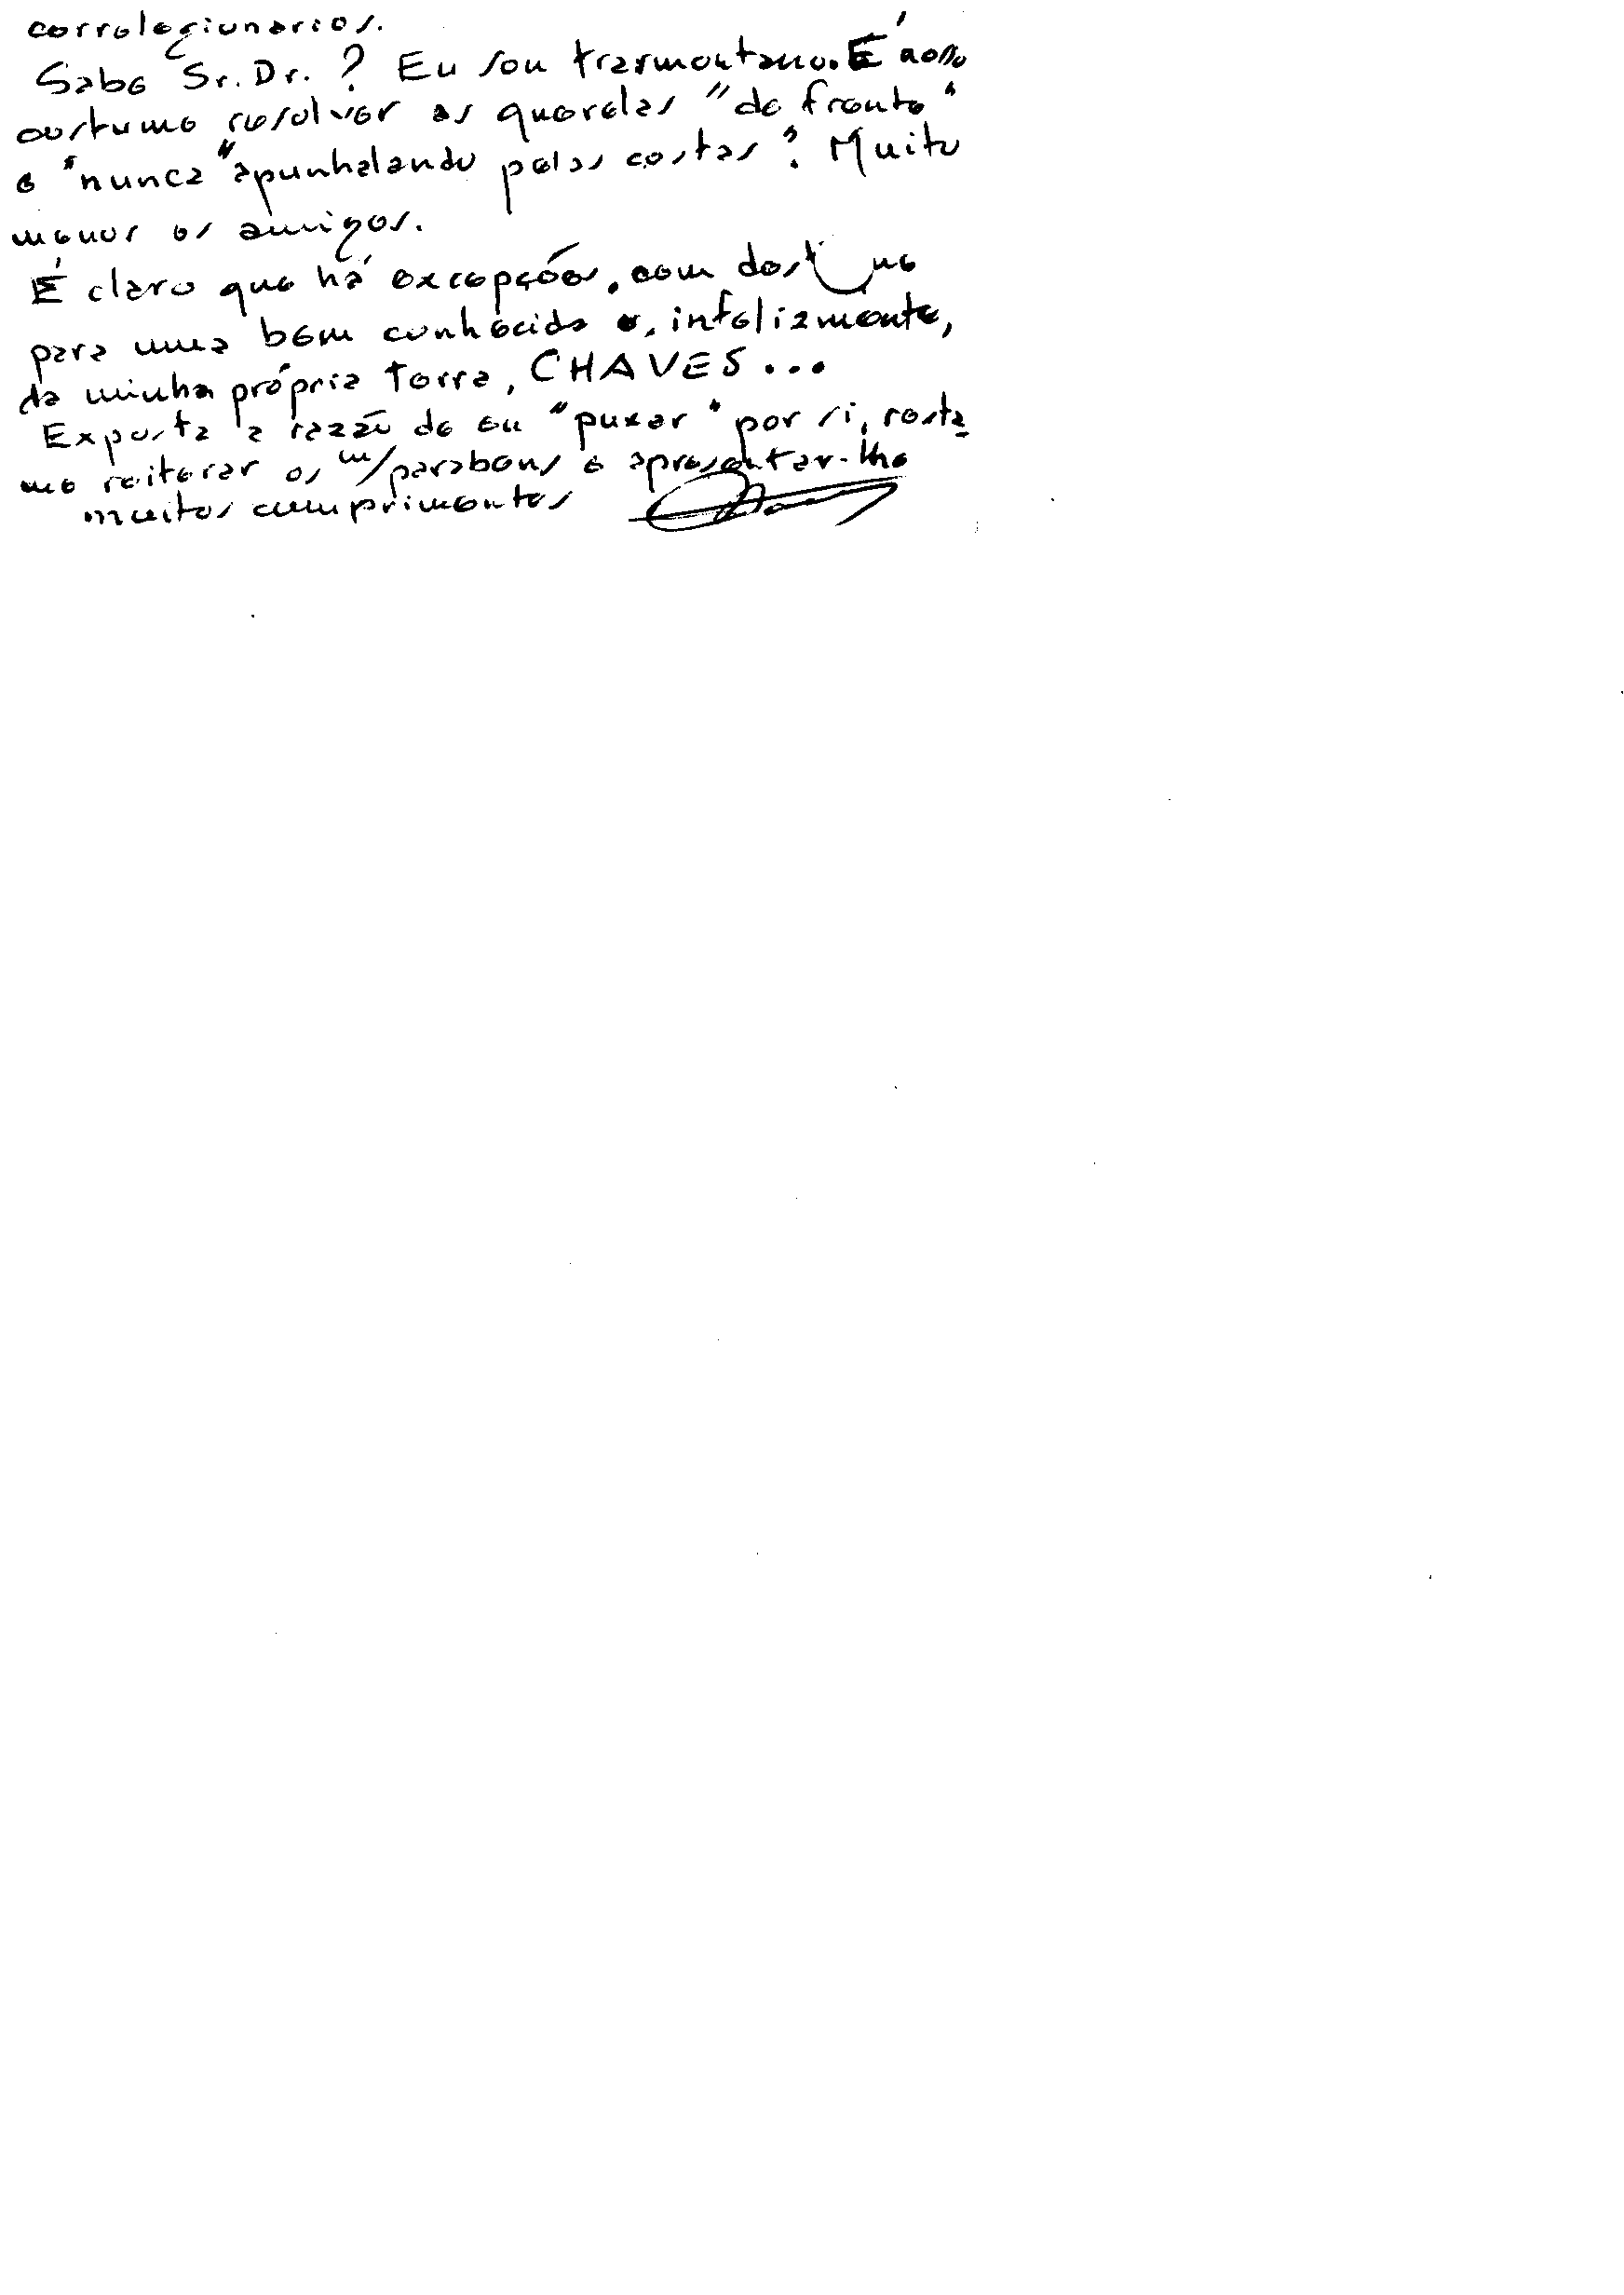 correlegionários.
Sabe Sr. Dr.? Eu sou trasmontano. É nosso
costume resolver as querelas "de frente"
e "nunca" apunhalando pelas costas? Muito
menos os amigos.
É claro que há excepções, com destaque
para uma bem conhecida e, infelizmente,
da minha própria terra, CHAVES...
Exposta a razão de eu "puxar" por si, resta
me reiterar os m/parabens e apresentar-lhe
muitos cumprimentos